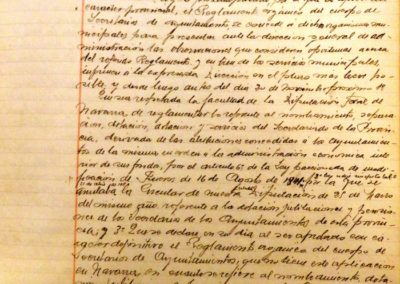 caracter provisional, el Reglamento organico del cuerpo de
Secretarios de ayuntamiento, se concede á dichos organismos mu-
nicipales para presentar ante la direccion general de ad-
ministración las observaciones que consideren oportunas acerca
del referido Reglamento, y en bien de los servicios municipales
á la expresada Direccion en el plazo mas breve po-
sible, y desde luego antes del dia 30 de noviembre proximo
la facultad de la Diputación foral de
Navarra de reglamentar lo referente al nombramiento, separa-
cion, dotacion, y servicio del Secretariado de la Provin-
cia, derivada de las atribuciones concedidas á los ayuntamien-
tos de la misma en orden á la administración económica inte-
rior de sus fondos, por el articulo 6º de la Ley paccionada de modi-
ficación de Fueros de 16 de Agosto de 1841, por la que se
la Circular de nuestra Diputación de 31 de Marzo
del mismo año referente á la dotación jubilaciones y pensio-
nes de los Secretarios de los Ayuntamientos de esta provin-
cia, y 3º en su dia al ser aprobado con ca-
racter definitivo el Reglamento organico del cuerpo de
Secretarios de Ayuntamientos, que no tiene en aplicacion
en Navarra, en cuanto se refiere al nombramiento, dota-